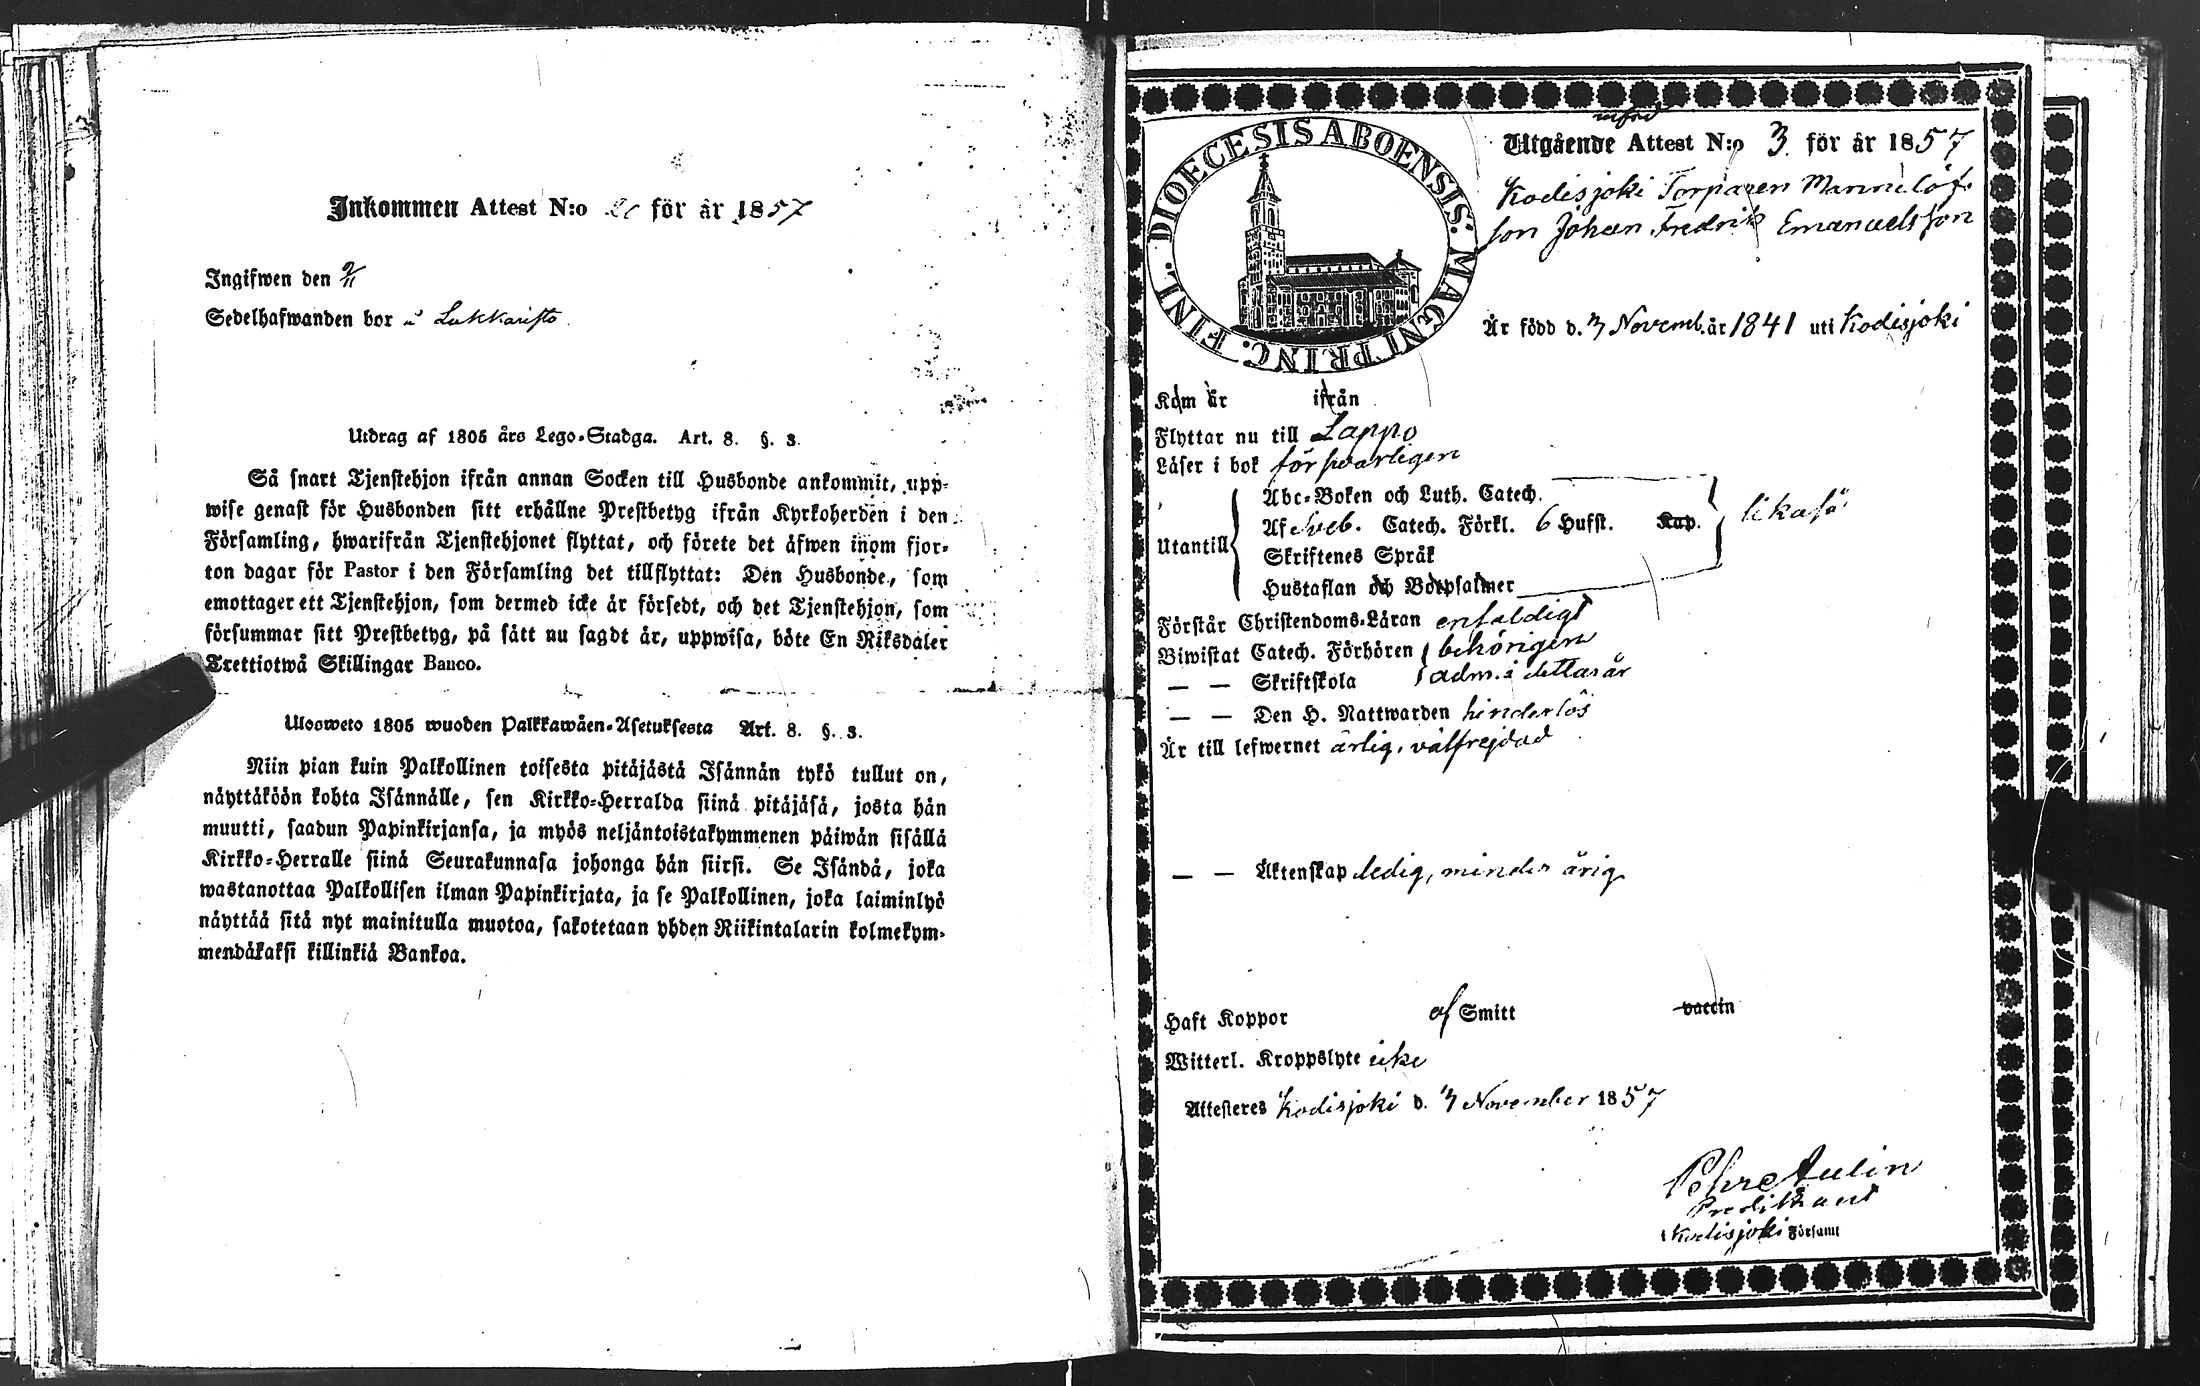 Inkommen Attest N:o för år 1857
Ingifwen den 9/11
Sedelhafwanden bor i Lukkaristo
Utdrag af 1805 års Lego-Stadga. Art. 8. §. 3.
Så snart Tjenstehjon ifrån annan Socken till Husbonde ankommit, upp-
wise genast för Husbonden sitt erhållne Prestbetyg ifrån Kyrkoherden i den
Församling, hwarifrån Tjenstehjonet flyttat, och förete det äfwen inom fjor-
ton dagar för Pastor i den Församling det tillflyttat: Den Husbonde, som
emottager ett Tjenstehjon, som dermed icke är försedt, och det Tjenstehjon, som
försummar sitt Prestbetyg, på sätt nu sagdt är, uppwisa, böte En Riksdaler
Trettiotwå Skillingar Banco.
Ulosweto 1805 wuoden Palkkawäen-Asetuksesta Art. 8. §. 3.
Niin pian kuin Palkollinen toisesta pitäjästä Isännän tykö tullut on,
näyttäköön kohta Isännälle, sen Kirkko-Herralda siinä pitäjäsä, josta hän
muutti, saadun Papinkirjansa, ja myös neljäntoistakymmenen päiwän sisällä
Kirkko-Herralle siinä Seurakunnasa johonga hän siirsi. Se Isändä, joka
wastanottaa Palkollisen ilman Papinkirjata, ja se Palkollinen, joka laiminlyö
näyttää sitä nyt mainitulla muotoa, sakotetaan yhden Riikintalarin kolmekym-
mendäkaksi killinkiä Bankoa.
DIOECESIS ABOENSIS. MAGNI PRINC. FINL.
Utgående Attest N:o 3. för år 1857
Kodisjoki Torparen
son Johan Fredrik Emanuelsson
Är född d. 3 Novemb. år 1841 uti Kodisjoki
Kom år ifrån
Flyttar nu till Lappo
Läser i bok försvarligen
Utantill
Abc-Boken och Luth. Catech.
Af Sveb. Catech. Förkl. 6 Hufst. Kap. likaså
Skriftenes Språk
Hustaflan och Botpsalmer
Förstår Christendoms-Läran enfaldigt
Biwistat Catech. Förhören behörigen
— — Skriftskola adm. i detta år
— — Den H. Nattwarden hinderlös
Är till lefwernet ärlig, välfrejdad
— — Äktenskap ledig, minderårig
Haft Koppor af Smitt vaccin
Witterl. Kroppslyte icke
Attesteres Kodisjoki d. 3 November 1857
Aulin
Predikant
Kodisjoki Församl